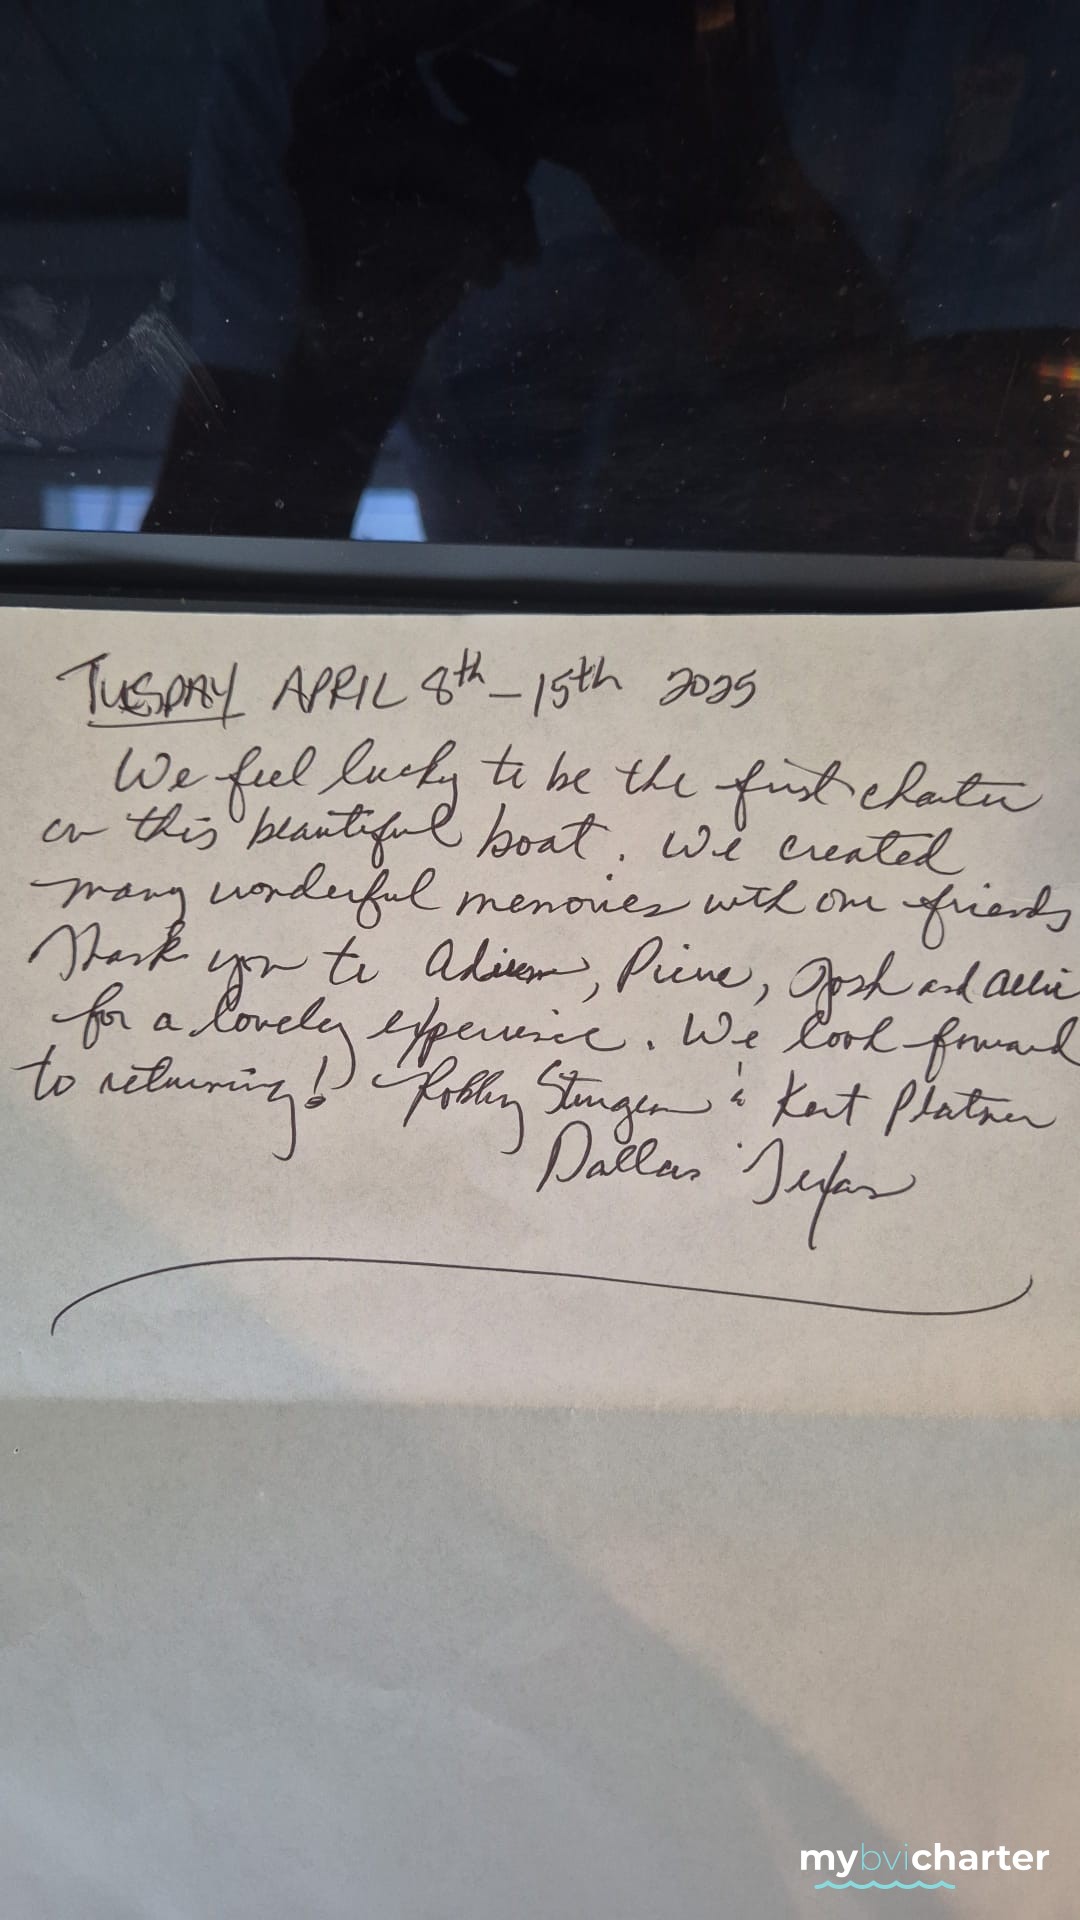 TUESDAY APRIL 8th - 15th 2025
We feel lucky to be the first charter
on this beautiful boat. We created
many wonderful memories with our friends
Thank you to Pierre, Josh and Allie
for a lovely experience. We look forward
to returning! Robbey Sturgeon & Kert Platner
Dallas Texas
mybvicharter